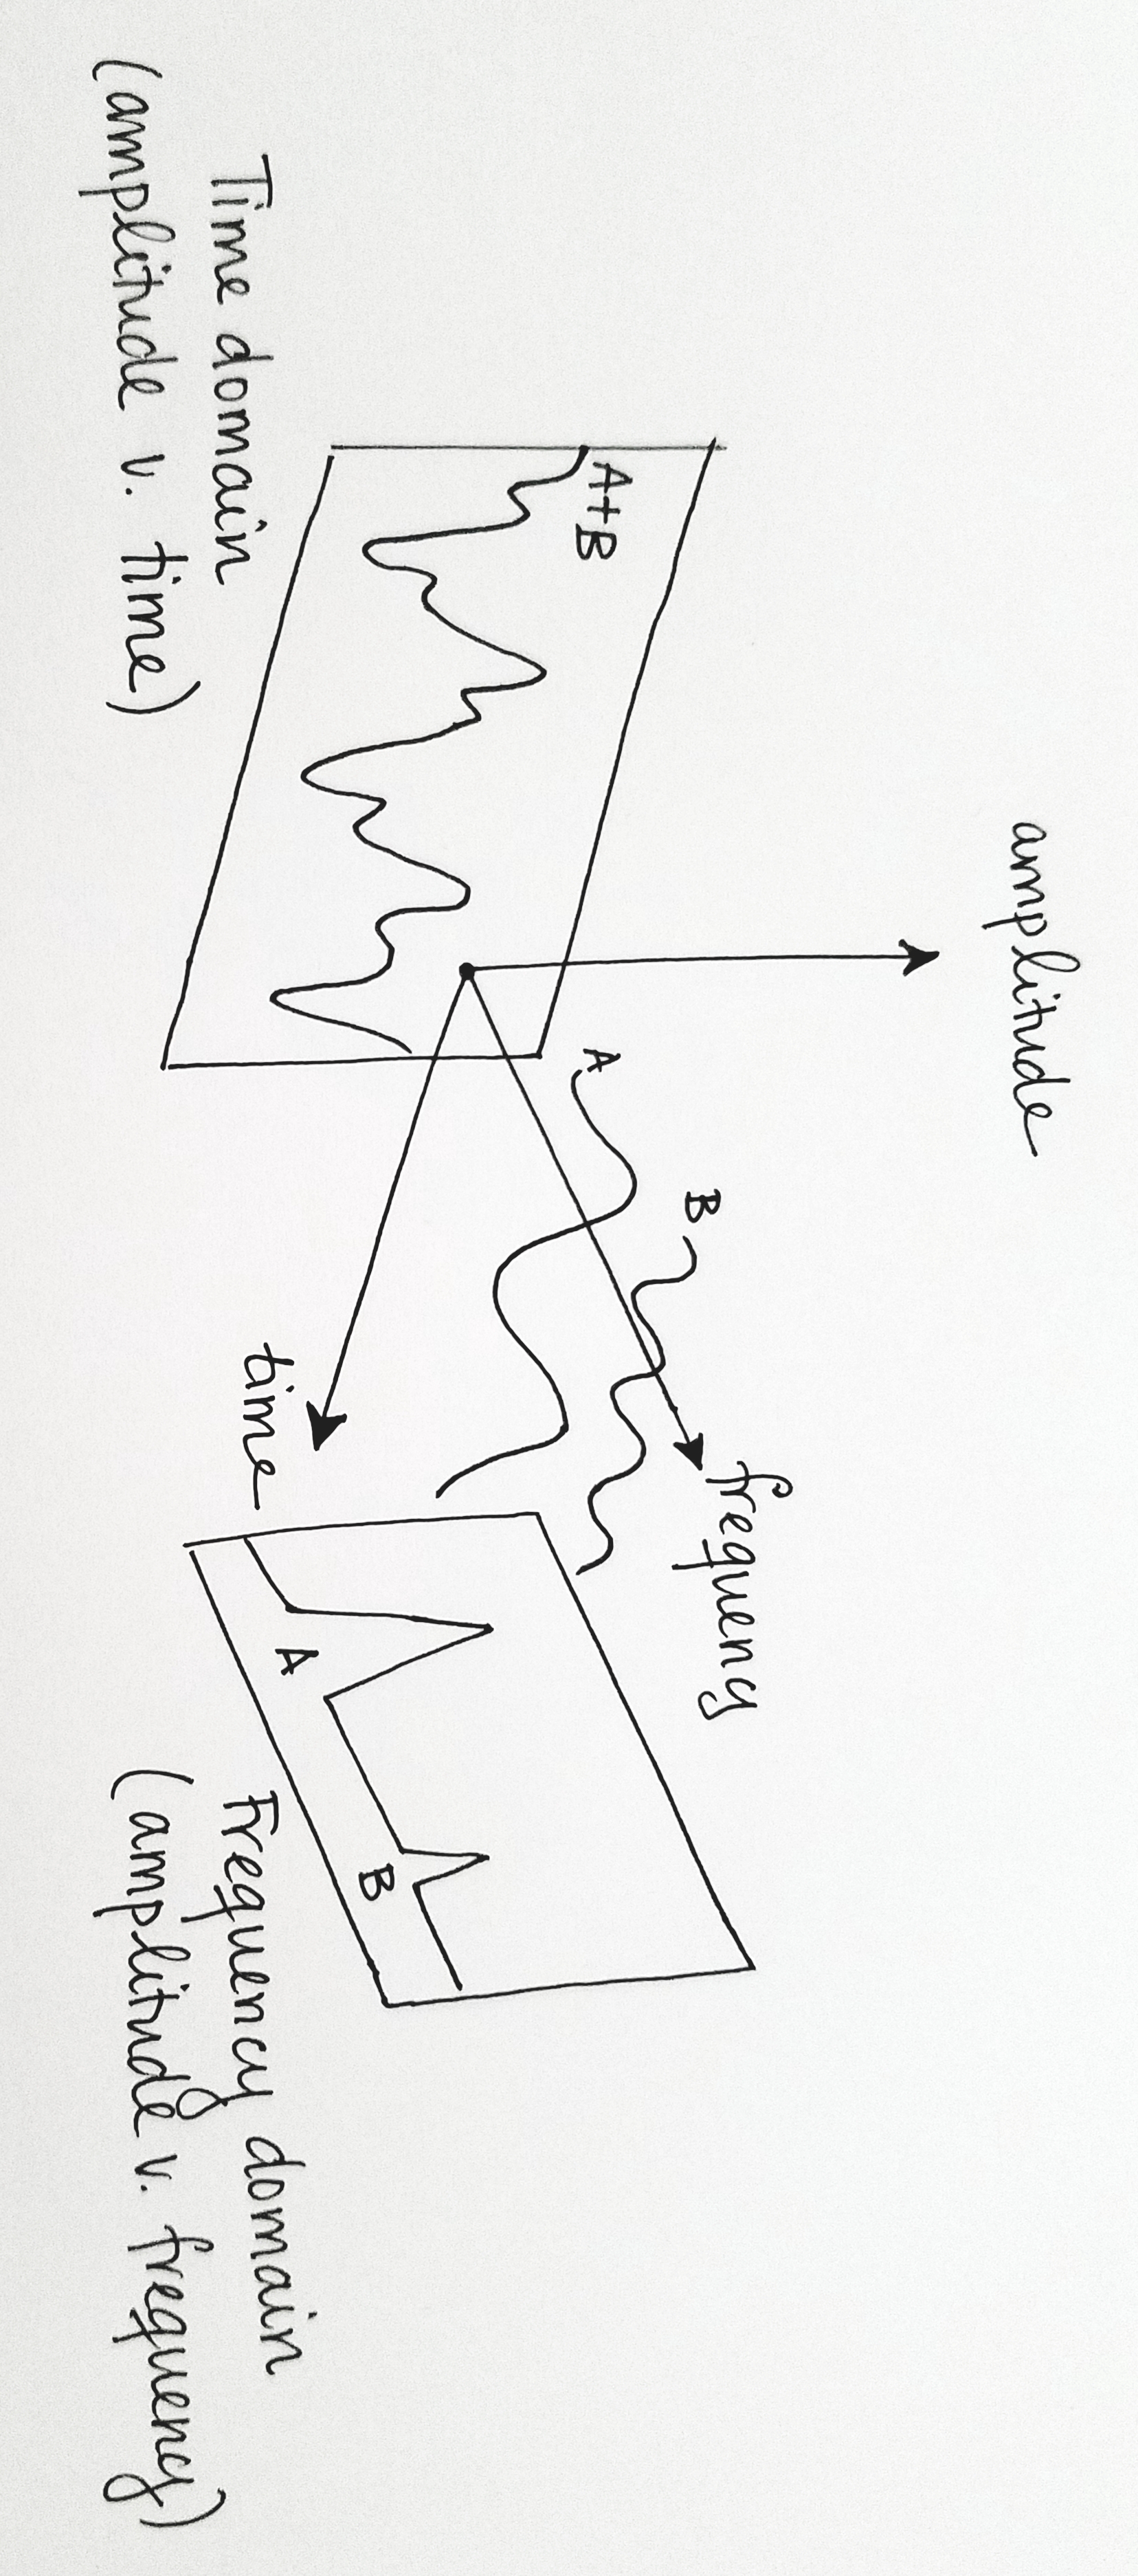 amplitude
frequency
B
A
A+B
time
A
B
Time domain
(amplitude v. time)
Frequency domain
(amplitude v. frequency)